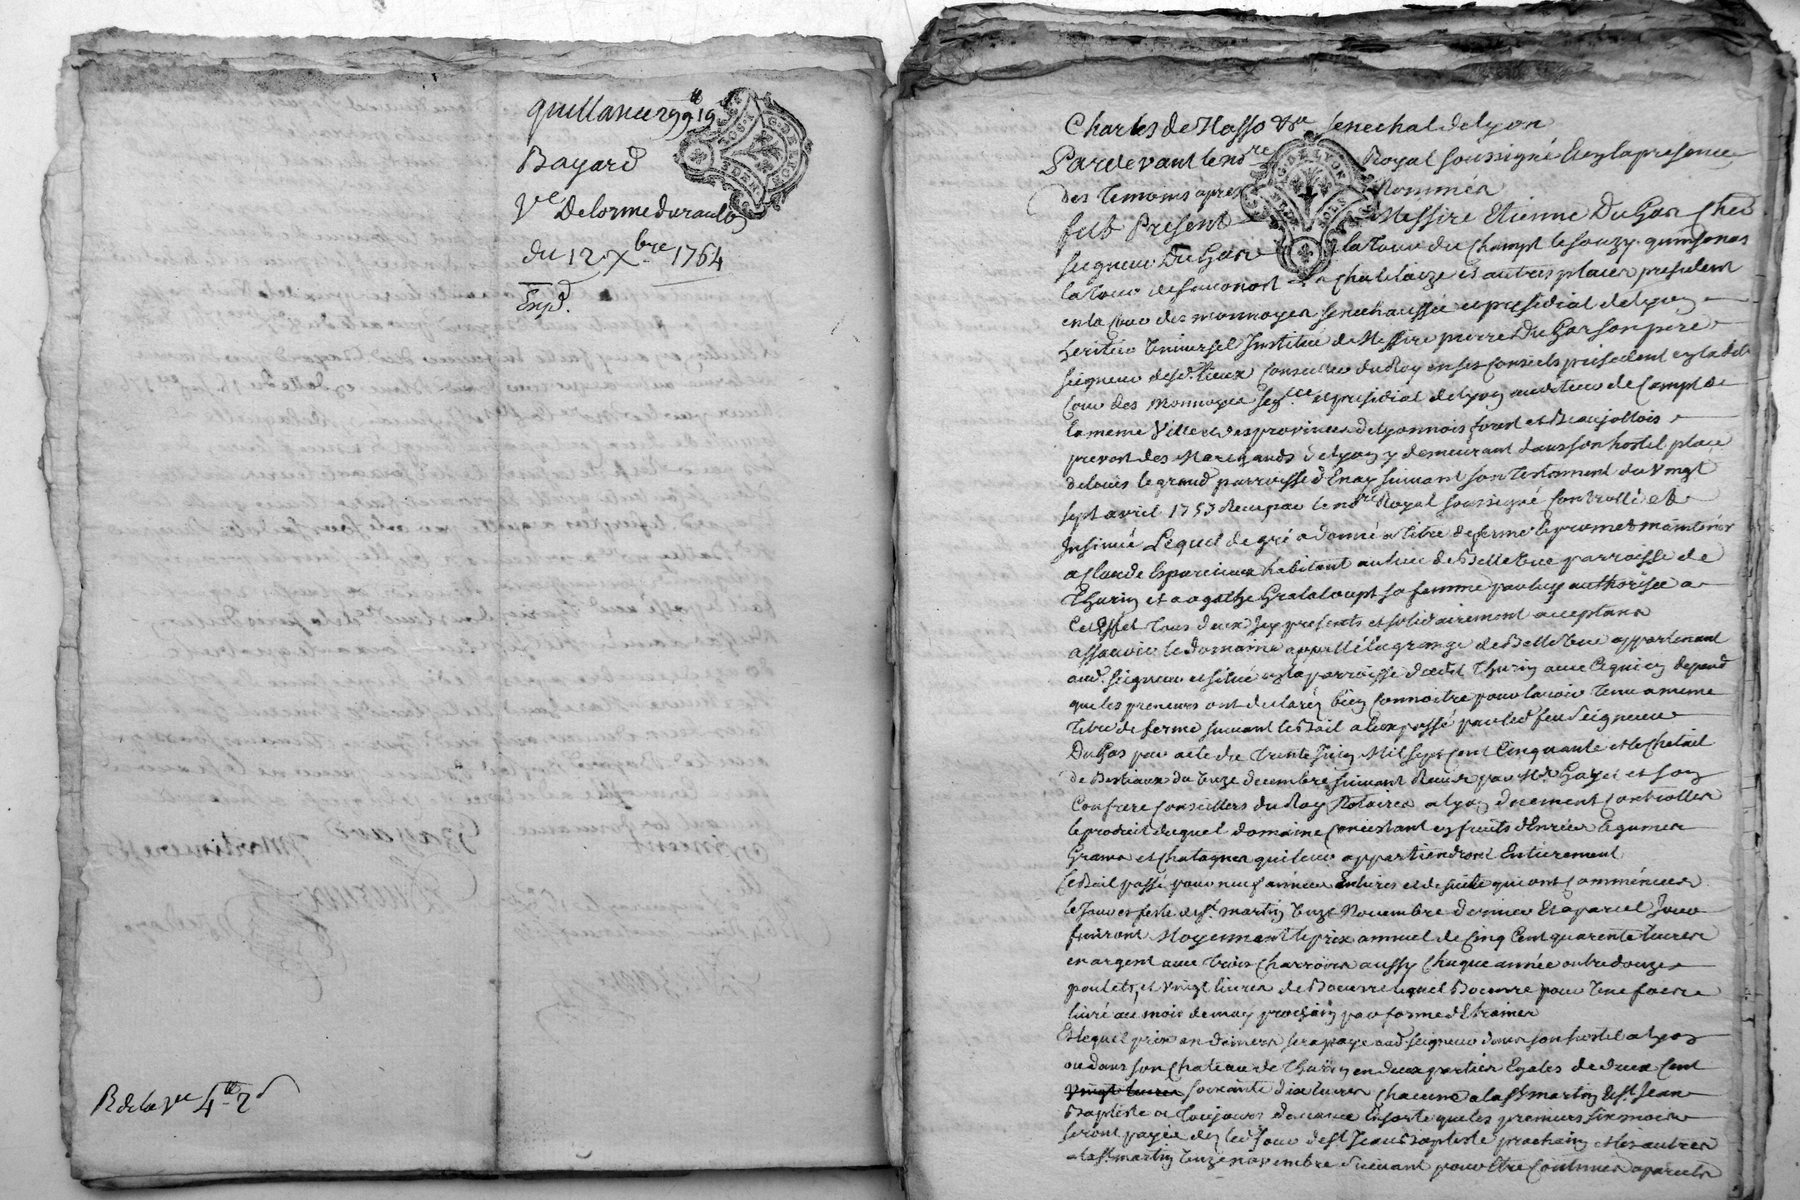 quittance 299 lt 19 s
Bayard
Vve Delorme
du 12 Xbre 1764
Expd.
R de la Vve 4 lt 2 s
Charles de Masso Sgr senechal de Lyon
Pardevant le nore Royal soussigné Et en la presence
des Temoins apres Nommés
fut Present Messire Etienne Du Gas Cher
seigneur Du Gas la Tour du Champt le souzy quinsonas
la Tour de et autres places president
en la Cour des monnoyes senechaussée et presidial de Lyon
heritier Universel Institué de Messire pierre Du Gas son pere
seigneur desd. lieux Conseiller du Roy en ses Conseils president en lad.
Cour des Monnoyes senée et presidial de Lyon
la meme Ville et des provinces de Lyonnois forest et Beaujollois
prevost des Marchands de Lyon y demeurant dans son hostel place
de Louis le grand parroisse d'Enay suivant son Testament du Vingt
sept avril 1753 Recu par le nore Royal soussigné Controllé et
Insinué Lequel de gré a donné a titre de ferme et promet maintenir
a Claude Esparcieux habitant au lieu de Bellevue parroisse de
Thurin et a agathe Grataloupt sa femme par luy authorisée a
Cet Effet Tous deux Icy presents et solidairement acceptans
assavoir le domaine appellé la grange de Bellevue appartenant
aud. seigneur et situé en la parroisse dudit Thurin avec Ce qui en depend
que les preneurs ont declaré bien Connoitre pour lavoir Tenu a meme
titre de ferme suivant le Bail a eux passé par led. feu seigneur
Du Gas par acte du Trente Juin Mil sept Cent Cinquante et le Chetail
de Bestiaux du onze decembre suivant Recus par Me Gayet et son
Confrere Conseillers du Roy Notaires a Lyon duement Controllés
le produit duquel domaine Consistant en fruits denrées Legumes
Grains et Chatagnes qui leur appartiendront Entierement
Ce Bail passé pour neuf années Entieres et de suitte qui ont Commencées
le Jour et feste de st. martin onze Novembre dernier Et a pareil Jour
finiront Moyennant le prix annuel de Cinq Cent quarente Livres
en argent avec Trois Charrois aussy Chaque année outre douze
poulets, et Vingt livres de Beurre lequel Beurre pour Une fois
livré au mois de may prochain par forme d'Etraines
Et lequel prix en deniers sera payé aud. seigneur dans son hostel a Lyon
ou dans son Chateau de Thurin en deux parties Egales de deux Cent
vingt livres soixante dix livres Chacune a la st. martin Et st. Jean
Baptiste et Toujours d'avance Ensorte que les premiers six mois
seront payés des led. Jour de st Jean Baptiste prochain et les autres
a la st. martin onze novembre suivant pour Etre Continués a pareils